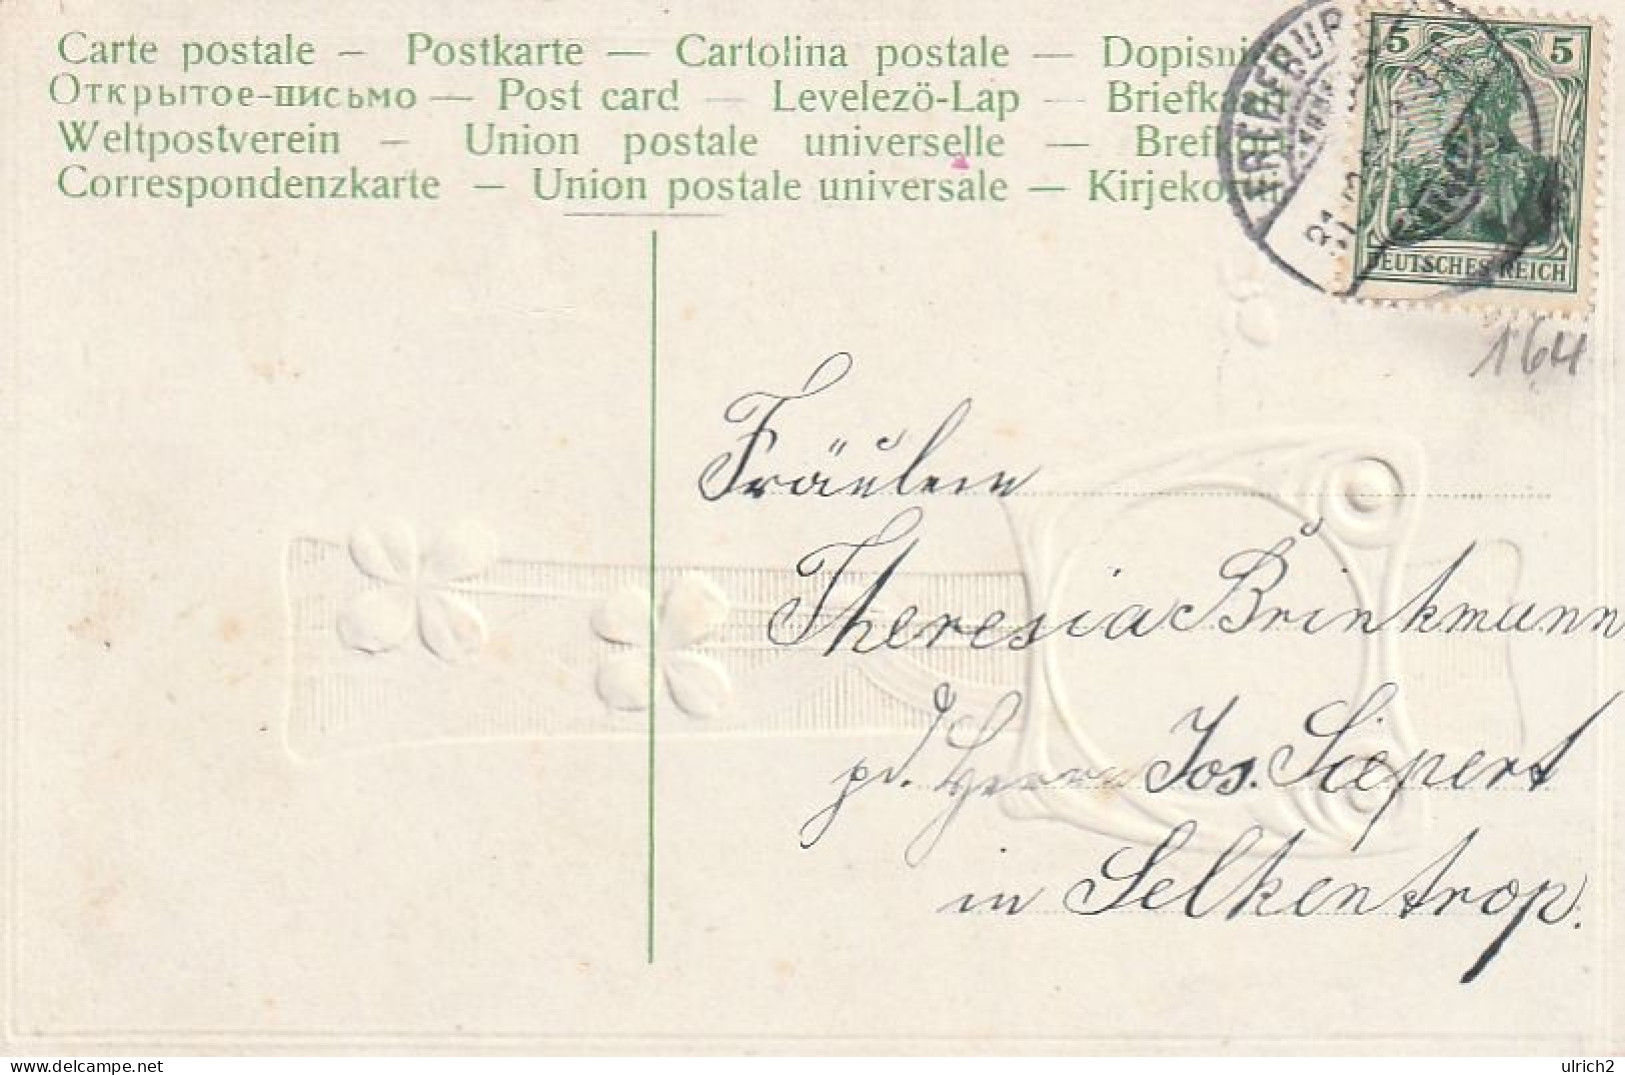 Carte postale – Postkarte — Cartolina postale — Dopisni
Открытое-письмо — Post card — Levelező-Lap — Briefka
Weltpostverein — Union postale universelle — Bref
Correspondenzkarte — Union postale universale — Kirjeko
5 5
DEUTSCHES REICH
164
Fräulein
Theresia Brinkmann
Herrn Jos. Siepert
in Selkentrop.
ulrich2
www.delcampe.net